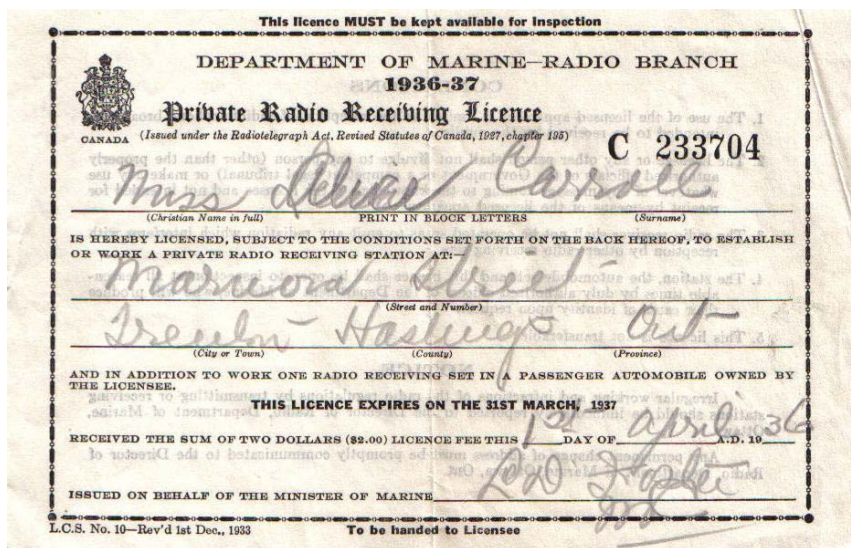 This licence MUST be kept available for Inspection
DEPARTMENT OF MARINE—RADIO BRANCH
1936-37
Private Radio Receiving Licence
CANADA
(Issued under the Radiotelegraph Act, Revised Statutes of Canada, 1927, chapter 195)
C 233704
Miss Carroll
(Christian Name in full) PRINT IN BLOCK LETTERS (Surname)
IS HEREBY LICENSED, SUBJECT TO THE CONDITIONS SET FORTH ON THE BACK HEREOF, TO ESTABLISH
OR WORK A PRIVATE RADIO RECEIVING STATION AT:—
Marmora Street
(Street and Number)
Trenton Hastings Ont
(City or Town) (County) (Province)
AND IN ADDITION TO WORK ONE RADIO RECEIVING SET IN A PASSENGER AUTOMOBILE OWNED BY
THE LICENSEE.
THIS LICENCE EXPIRES ON THE 31ST MARCH, 1937
RECEIVED THE SUM OF TWO DOLLARS ($2.00) LICENCE FEE THIS 1st DAY OF April A.D. 1936
ISSUED ON BEHALF OF THE MINISTER OF MARINE
L.C.S. No. 10—Rev'd 1st Dec., 1933 To be handed to Licensee